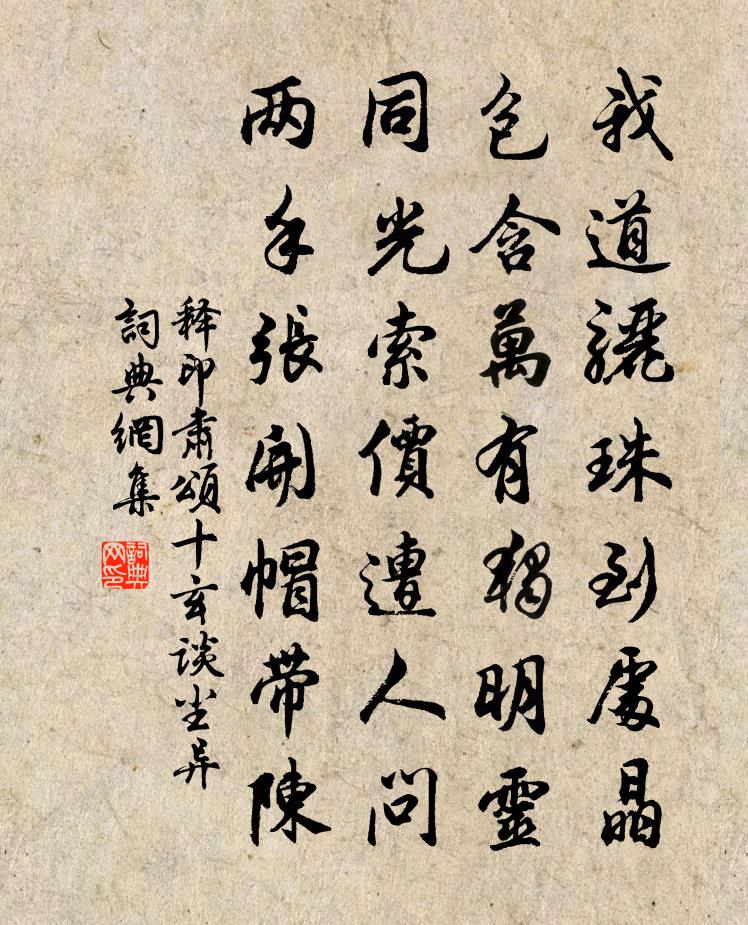 我道驪珠到處晶
包含萬有獨明靈
同光索價遭人問
两手張開帽带陳
释印肅頌十玄谈尘异
詞典網集
詞典網印